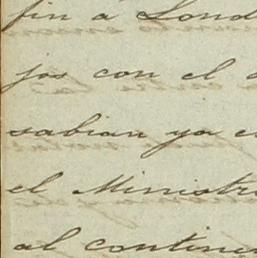 fin á Lond
jos con el
sabian ya e
el Ministr
al contine